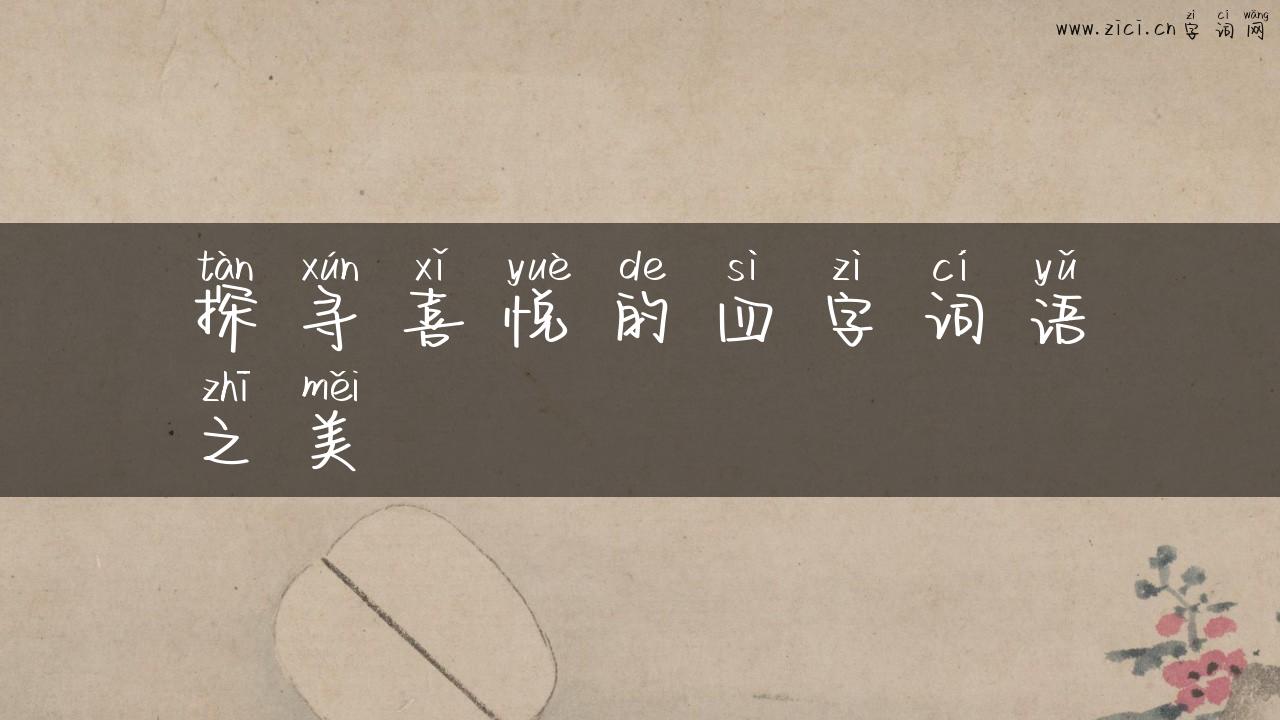 zì cí wǎng
www.zici.cn字词网
tàn xún xǐ yuè de sì zì cí yǔ
探寻喜悦的四字词语
zhī měi
之美